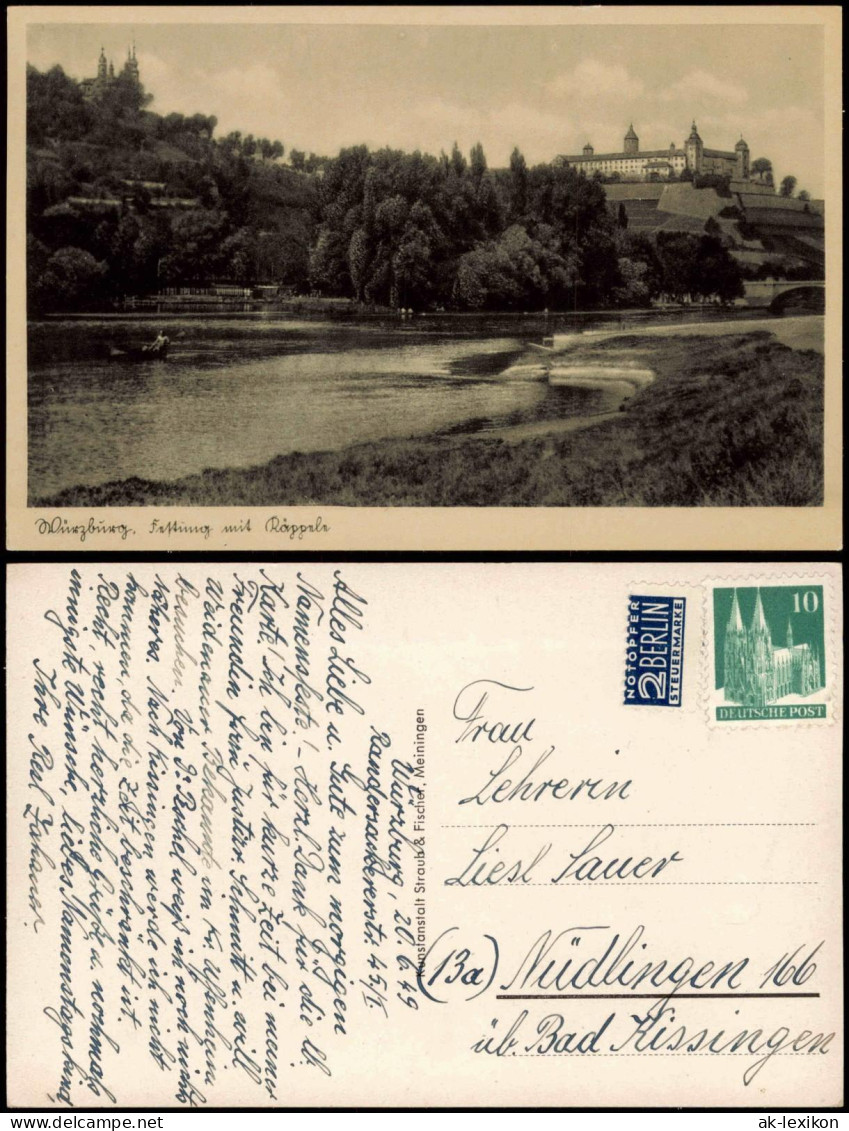 Würzburg. Festung mit Käppele
Würzburg, 20.6.49
Randersackererstr. 45/I
Alles Liebe u. Gute zum morgigen
Namensfeste! Herzl. Dank für die lb.
Karte! Ich bin für kurze Zeit bei meiner
Freundin Schmitt u. will
Weidenauer Bekannte in Kr. Uffenheim
besuchen. Von weiß ich noch nichts
Näheres. Nach Kissingen werde ich nicht
kommen, da die Zeit beschränkt ist.
Recht, recht herzliche Grüße u. nochmals
innigste Wünsche, liebes Namenstagskind
Ihre
Kunstanstalt Straub & Fischer, Meiningen
NOTOPFER
2 BERLIN
STEUERMARKE
10
DEUTSCHE POST
Frau
Lehrerin
Liesl Sauer
(13a) Nüdlingen 166
üb. Bad Kissingen
ak-lexikon